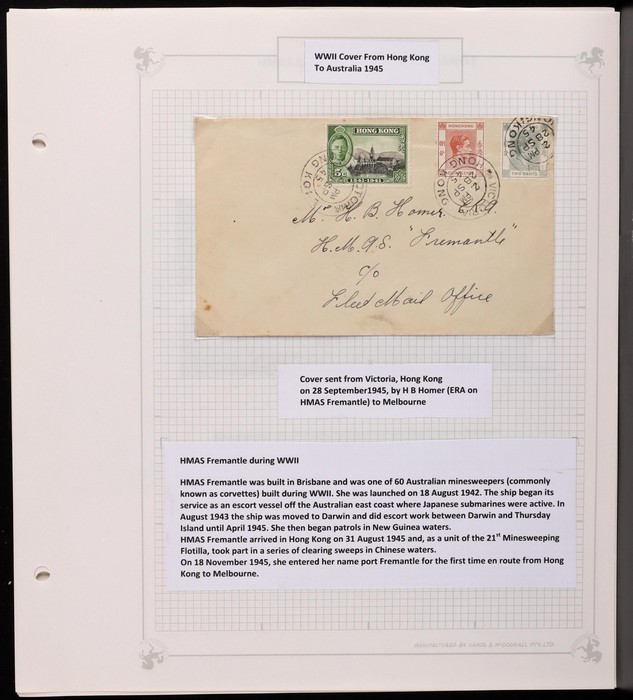 WWII Cover From Hong Kong
To Australia 1945
HONG KONG
5c
1841-1941
HONGKONG
TWO CENTS
VICTORIA
HONG KONG
28 SP
45
Mr H. B. Homer. E.R.A.
H.M.A.S. "Fremantle"
c/o
Fleet Mail Office
Cover sent from Victoria, Hong Kong
on 28 September1945, by H B Homer (ERA on
HMAS Fremantle) to Melbourne
HMAS Fremantle during WWII
HMAS Fremantle was built in Brisbane and was one of 60 Australian minesweepers (commonly
known as corvettes) built during WWII. She was launched on 18 August 1942. The ship began its
service as an escort vessel off the Australian east coast where Japanese submarines were active. In
August 1943 the ship was moved to Darwin and did escort work between Darwin and Thursday
Island until April 1945. She then began patrols in New Guinea waters.
HMAS Fremantle arrived in Hong Kong on 31 August 1945 and, as a unit of the 21st Minesweeping
Flotilla, took part in a series of clearing sweeps in Chinese waters.
On 18 November 1945, she entered her name port Fremantle for the first time en route from Hong
Kong to Melbourne.